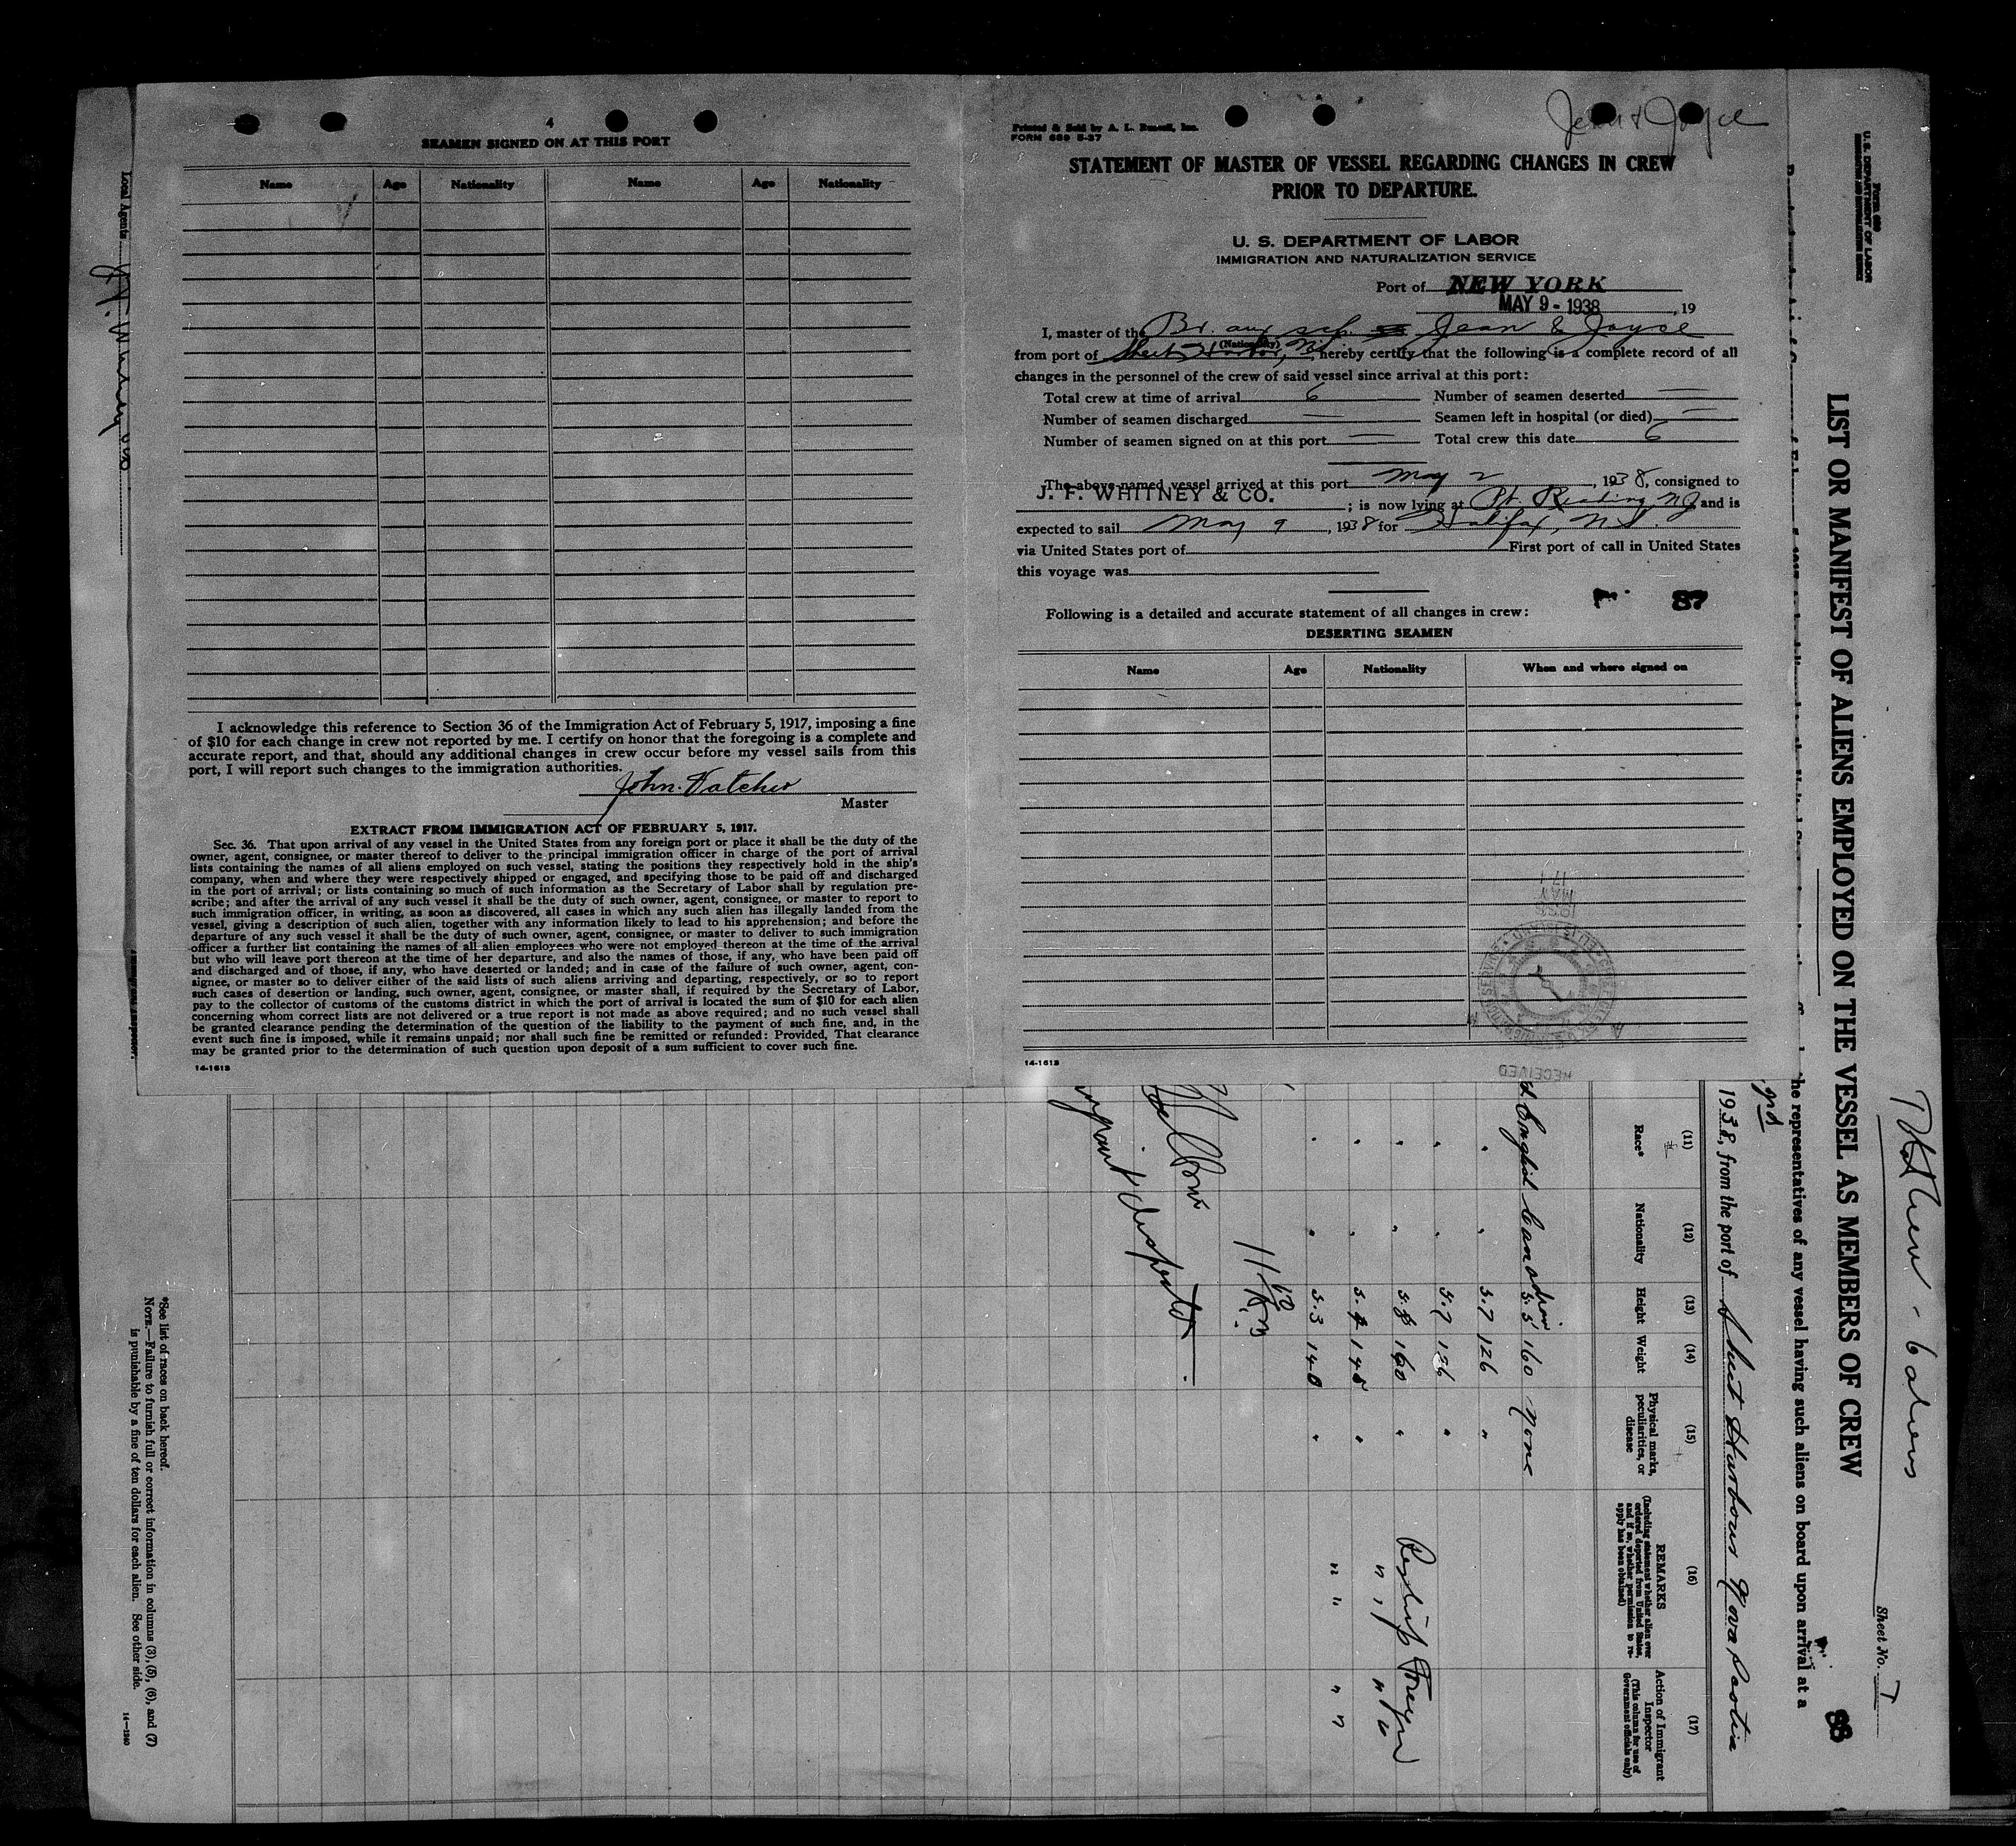 4
SEAMEN SIGNED ON AT THIS PORT
Name Age Nationality Name Age Nationality
I acknowledge this reference to Section 36 of the Immigration Act of February 5, 1917, imposing a fine
of $10 for each change in crew not reported by me. I certify on honor that the foregoing is a complete and
accurate report, and that, should any additional changes in crew occur before my vessel sails from this
port, I will report such changes to the immigration authorities.
John
Master
EXTRACT FROM IMMIGRATION ACT OF FEBRUARY 5, 1917.
Sec. 36. That upon arrival of any vessel in the United States from any foreign port or place it shall be the duty of the
owner, agent, consignee, or master thereof to deliver to the principal immigration officer in charge of the port of arrival
lists containing the names of all aliens employed on such vessel, stating the positions they respectively hold in the ship's
company, when and where they were respectively shipped or engaged, and specifying those to be paid off and discharged
in the port of arrival; or lists containing so much of such information as the Secretary of Labor shall by regulation pre-
scribe; and after the arrival of any such vessel it shall be the duty of such owner, agent, consignee, or master to report to
such immigration officer, in writing, as soon as discovered, all cases in which any such alien has illegally landed from the
vessel, giving a description of such alien, together with any information likely to lead to his apprehension; and before the
departure of any such vessel it shall be the duty of such owner, agent, consignee, or master to deliver to such immigration
officer a further list containing the names of all alien employees who were not employed thereon at the time of the arrival
but who will leave port thereon at the time of her departure, and also the names of those, if any, who have been paid off
and discharged and of those, if any, who have deserted or landed; and in case of the failure of such owner, agent, con-
signee, or master so to deliver either of the said lists of such aliens arriving and departing, respectively, or so to report
such cases of desertion or landing, such owner, agent, consignee, or master shall, if required by the Secretary of Labor,
pay to the collector of customs of the customs district in which the port of arrival is located the sum of $10 for each alien
concerning whom correct lists are not delivered or a true report is not made as above required; and no such vessel shall
be granted clearance pending the determination of the question of the liability to the payment of such fine, and, in the
event such fine is imposed, while it remains unpaid; nor shall such fine be remitted or refunded: Provided, That clearance
may be granted prior to the determination of such question upon deposit of a sum sufficient to cover such fine.
14-1613
Jean & Joyce
Printed & Sold by A. L. Russell, Inc.
FORM 689 5-27
STATEMENT OF MASTER OF VESSEL REGARDING CHANGES IN CREW
PRIOR TO DEPARTURE.
U. S. DEPARTMENT OF LABOR
IMMIGRATION AND NATURALIZATION SERVICE
Port of NEW YORK
MAY 9 - 1938, 19
I, master of the Br. aux sch. Jean & Joyce
(Nationality)
from port of Sheet Harbor, NS, hereby certify that the following is a complete record of all
changes in the personnel of the crew of said vessel since arrival at this port:
Total crew at time of arrival 6 Number of seamen deserted
Number of seamen discharged Seamen left in hospital (or died)
Number of seamen signed on at this port Total crew this date 6
The above-named vessel arrived at this port May 2, 1938, consigned to
J. F. WHITNEY & CO.; is now lying at Pt. Reading NJ and is
expected to sail May 9, 1938 for Halifax, N.S.
via United States port of First port of call in United States
this voyage was
87
Following is a detailed and accurate statement of all changes in crew:
DESERTING SEAMEN
Name Age Nationality When and where signed on
MAY 17
RECEIVED
14-1613
Form 689
U. S. DEPARTMENT OF LABOR
IMMIGRATION AND NATURALIZATION SERVICE
LIST OR MANIFEST OF ALIENS EMPLOYED ON THE VESSEL AS MEMBERS OF CREW
6 aliens
Sheet No. 1
88
the representatives of any vessel having such aliens on board upon arrival at a
1938, from the port of Sheet Harbour Nova Scotia
(11) (12) (13) (14) (15) (16) (17)
Race* Nationality Height Weight Physical marks, peculiarities, or disease REMARKS (Including statement whether alien ever ordered deported from United States, and if so, whether permission to re-apply has been obtained) Action of Immigrant Inspector (This column for use of Government officials only)
English Canadian 5.5 160 None
" " 5.7 126 "
" " 5.7 126 "
" " 5.8 160 " Reship Foreign
" " 5.4 145 " " " " "
" " 5.3 140 " " " " "
*See list of races on back hereof.
NOTE.—Failure to furnish full or correct information in columns (3), (5), (6), and (7)
is punishable by a fine of ten dollars for each alien. See other side.
14-1240
Local Agents J. F. Whitney & Co
Immigrant Inspector.